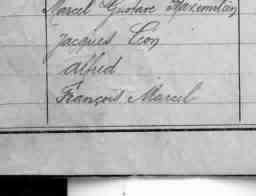 Marcel Gustave Maximilien
Jacques Léon
Alfred
François Marcel